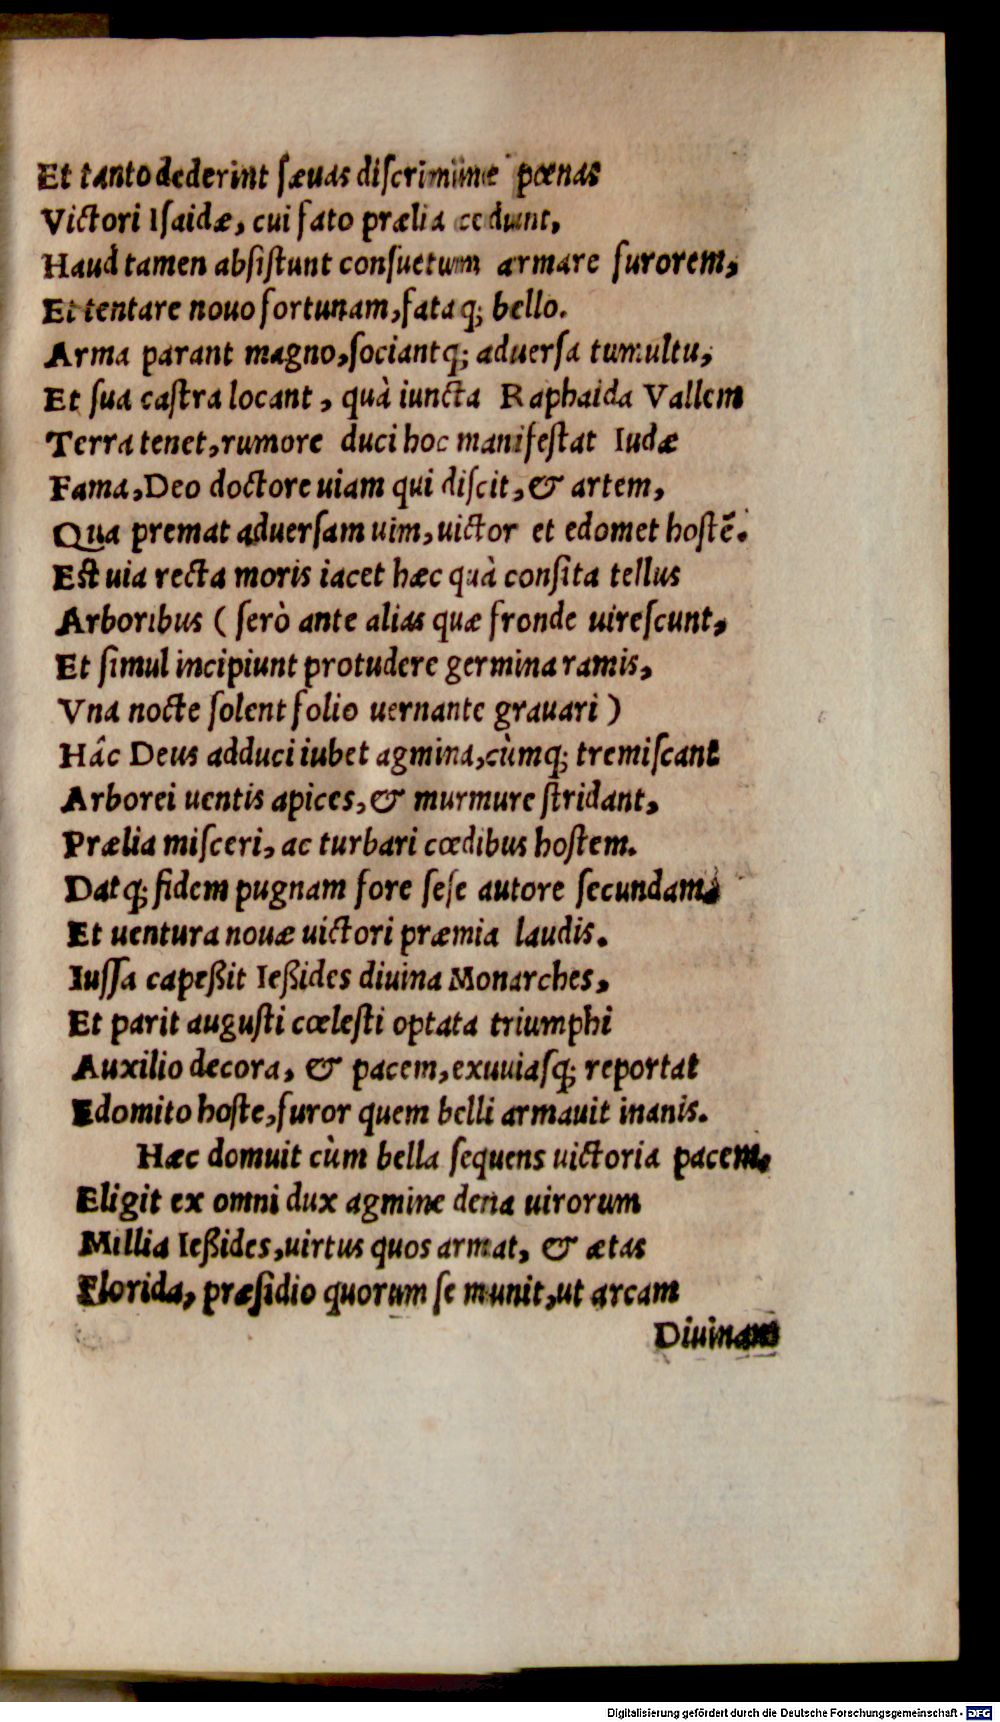 Et tanto dederint sæuas discrimine pœnas
Victori Isaidæ, cui fato prælia cedunt,
Haud tamen absistunt consuetum armare furorem,
Et tentare nouo fortunam, fataq; bello.
Arma parant magno, sociantq; aduersa tumultu,
Et sua castra locant, quà iuncta Raphaida Vallem
Terra tenet, rumore duci hoc manifestat Iudæ
Fama, Deo doctore uiam qui discit, & artem,
Qua premat aduersam uim, uictor et edomet hostẽ.
Est uia recta moris iacet hæc quà consita tellus
Arboribus ( serò ante alias quæ fronde uirescunt,
Et simul incipiunt protudere germina ramis,
Vna nocte solent folio uernante grauari )
Hâc Deus adduci iubet agmina, cùmq; tremiscant
Arborei uentis apices, & murmure stridant,
Prælia misceri, ac turbari cœdibus hostem.
Datq; fidem pugnam fore sese autore secundam,
Et uentura nouæ uictori præmia laudis.
Iussa capeßit Ießides diuina Monarches,
Et parit augusti cœlesti optata triumphi
Auxilio decora, & pacem, exuuiasq; reportat
Edomito hoste, furor quem belli armauit inanis.
Hæc domuit cùm bella sequens uictoria pacem,
Eligit ex omni dux agmine dena uirorum
Millia Ießides, uirtus quos armat, & ætas
Florida, præsidio quorum se munit, ut arcam
Diuinam
Digitalisierung gefördert durch die Deutsche Forschungsgemeinschaft - DFG